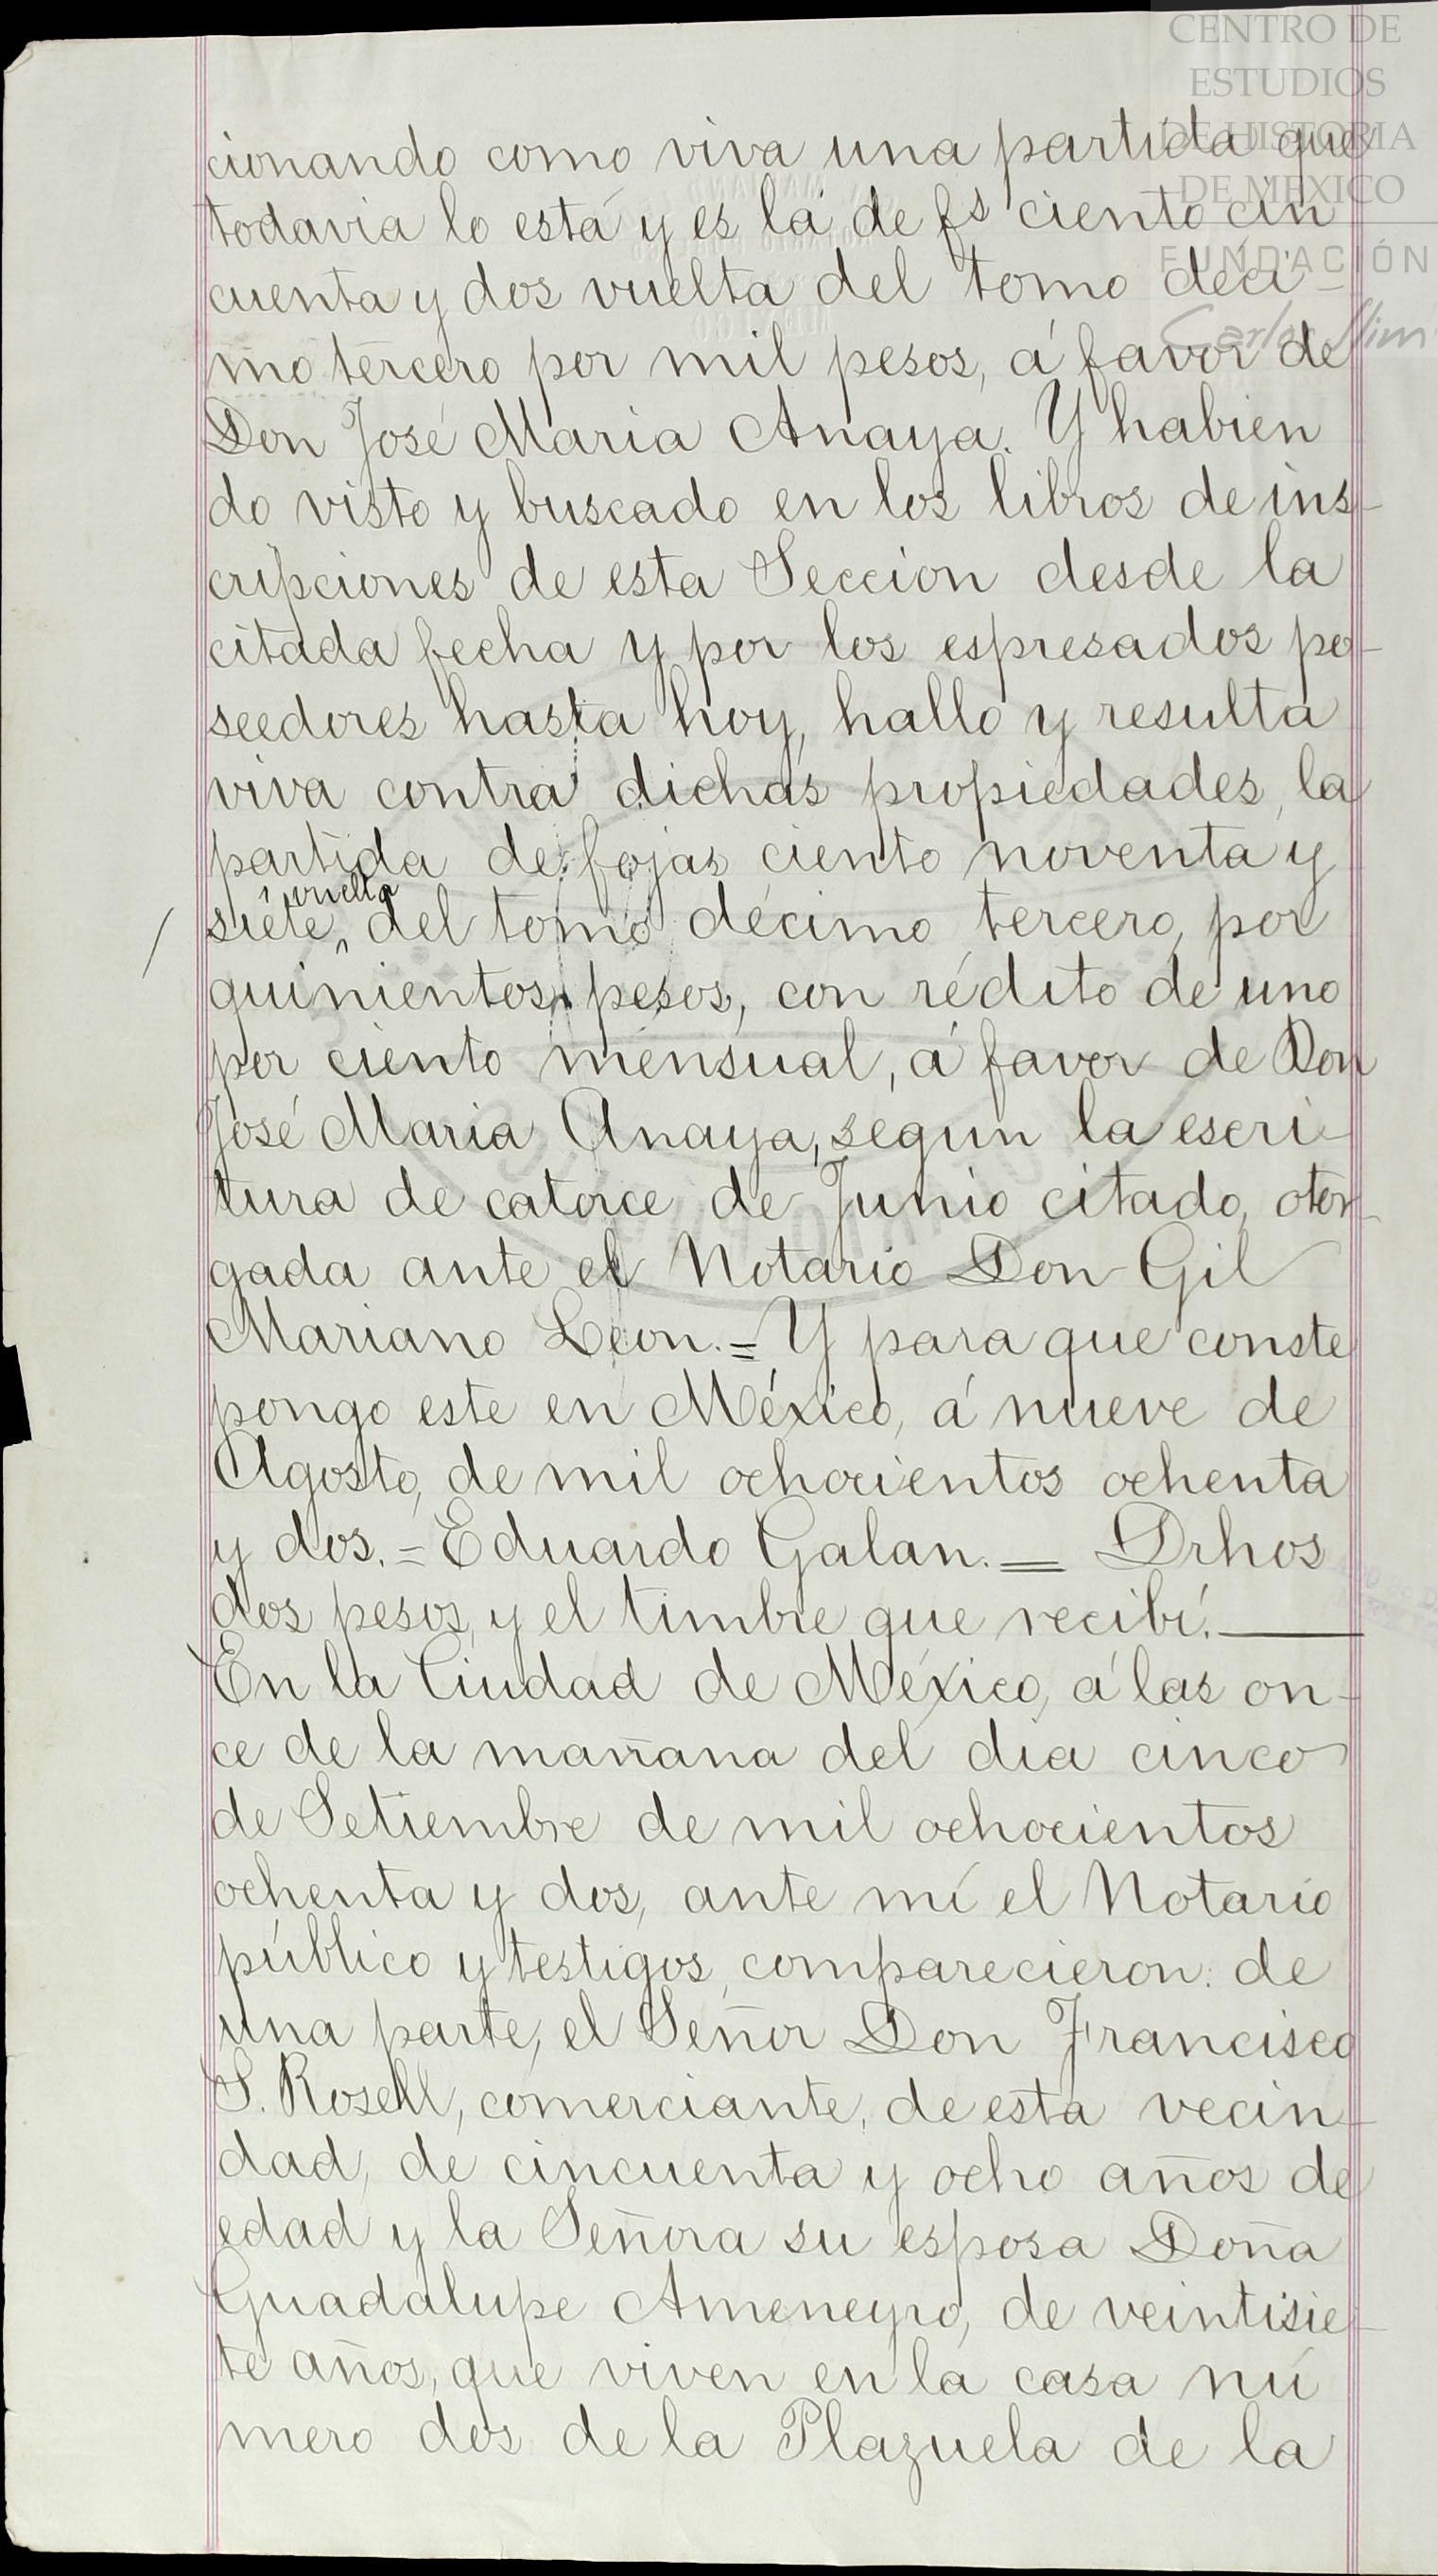 CENTRO DE
ESTUDIOS
DE HISTORIA
DE MÉXICO
FUNDACIÓN
Carlos Slim
cionando como viva una partida que
todavia lo está y es la de fs ciento cin
cuenta y dos vuelta del tomo déci-
mo tercero por mil pesos, á favor de
Don José Maria Anaya. Y habien
do visto y buscado en los libros de ins-
cripciones de esta Seccion desde la
citada fecha y por los espresados po-
seedores hasta hoy, hallo y resulta
viva contra dichas propiedades, la
partida de fojas ciento noventa y
siete, vuelta del tomo décimo tercero, por
quinientos pesos, con rédito de uno
por ciento mensual, á favor de Don
José Maria Anaya, segun la escri-
tura de catorce de Junio citado, otor-
gada ante el Notario Don Gil
Mariano Leon.= Y para que conste
pongo este en México, á nueve de
Agosto, de mil ochocientos ochenta
y dos. = Eduardo Galan. = Drhos
dos pesos, y el timbre que recibí.
En la Ciudad de México, á las on-
ce de la mañana del dia cinco
de Setiembre de mil ochocientos
ochenta y dos, ante mí el Notario
público y testigos, comparecieron: de
una parte, el Señor Don Francisco
S. Rosell, comerciante, de esta vecin-
dad, de cincuenta y ocho años de
edad y la Señora su esposa Doña
Guadalupe Ameneyro, de veintisie-
te años, que viven en la casa nú
mero dos de la Plazuela de la